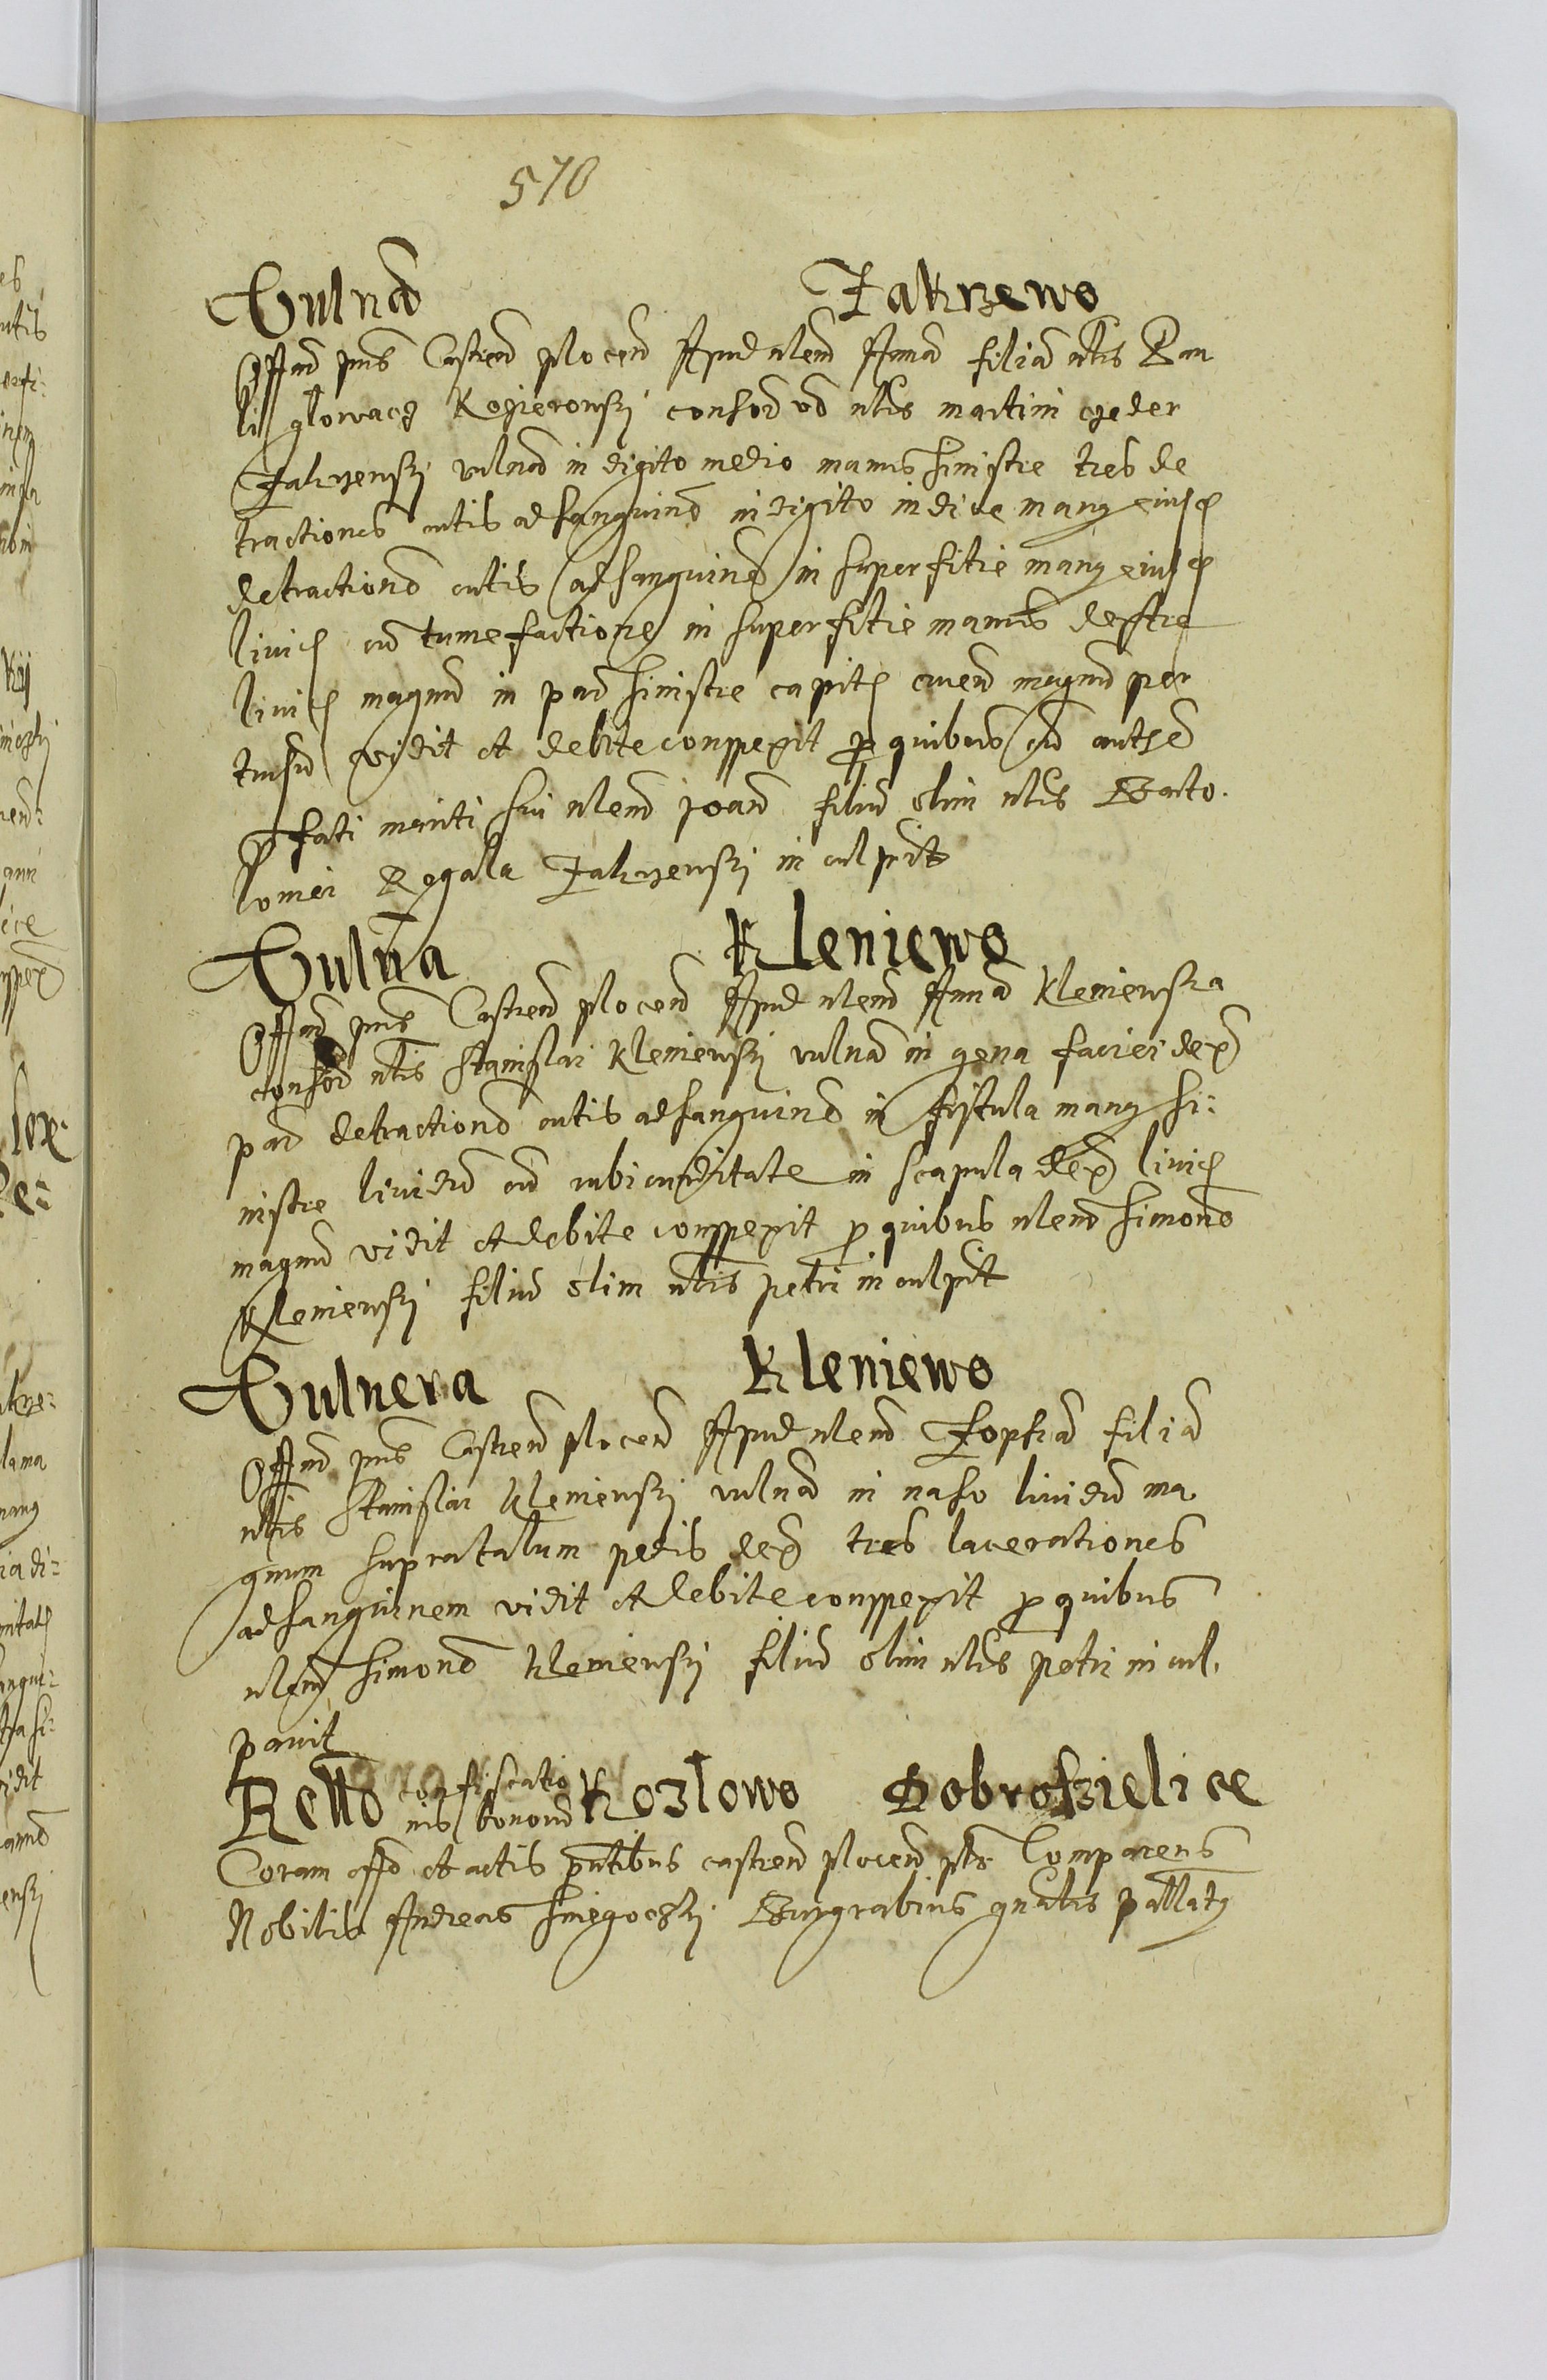 570
Vulnera Zakrzewo
Offm pns Castren plocen Apud nlem Annam filiam nlis Pau
li glowacz Kozierowski consor vo nlis martini czeder
Zakrzewski vulnera in digito medio manus sinistre tres de
tractiones cutis ad sanguinem in digito indice manus eiusd
detractionem cutis ad sanguinem in superfitie manus eiusd
livid cum tumefactione in superfitie manus dextre
livid magnum in parte sinistre capitis cruen magnum per
tusum vidit et debite conspexit pro quibus cum autem
pfati mariti sui nlem Joannem filium olim nlis Barto.
lomei Rogala Zakrzewski inculpavit
Vulnera Kleniewo
Offm pns Castren plocen Apud nlem Annam Kleniewska
consor nlis Stanislai Kleniewski vulnera in gena faciei dex
parte detractionem cutis ad sanguinem in fistula manus si:
nistre lividum cum rubicunditate in scapula dex livid
magnum vidit et debite conspexit pro quibus nlem Simonem
Kleniewski filium olim nlis petri inculpavit
Vulnera Kleniewo
Offm pns Castren plocen Apud nlem Zophiam filiam
nlis Stanislai Kleniewski vulnera in naso lividum ma
gnum supra talum pedis dex tres lacerationes
ad sanguinem vidit et debite conspexit pro quibus
nlem Simonem Kleniewski filium olim nlis petri incul.
pavit
Rello confiscatio
nis bonorum Kozlowo Dobrosielice
Coram offo et actis pntibus castren plocen pls Comparens
Nobilis Andreas Sniegoczki Burgrabius gnalis pallatus